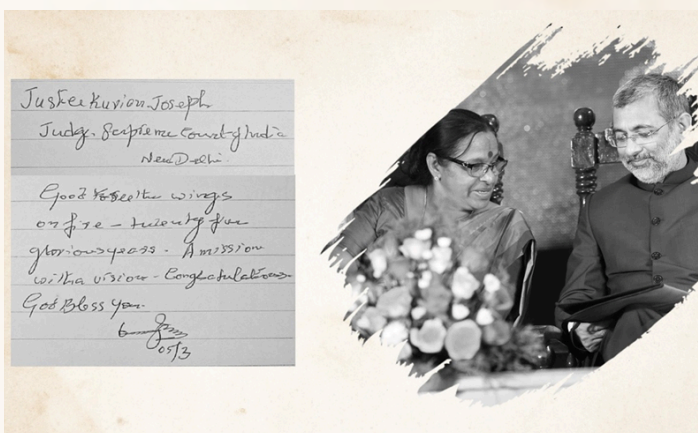 Justice Kurian Joseph
Judge. Supreme Court of India
New Delhi.
Good to see the wings
on fire - twenty five
glorious years. A mission
with a vision - Congratulations
God Bless You.
05/3